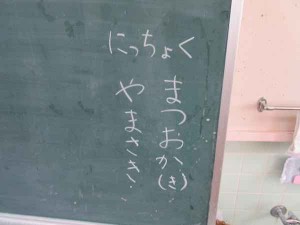 にっちょく
まつおか(き)
やまさき